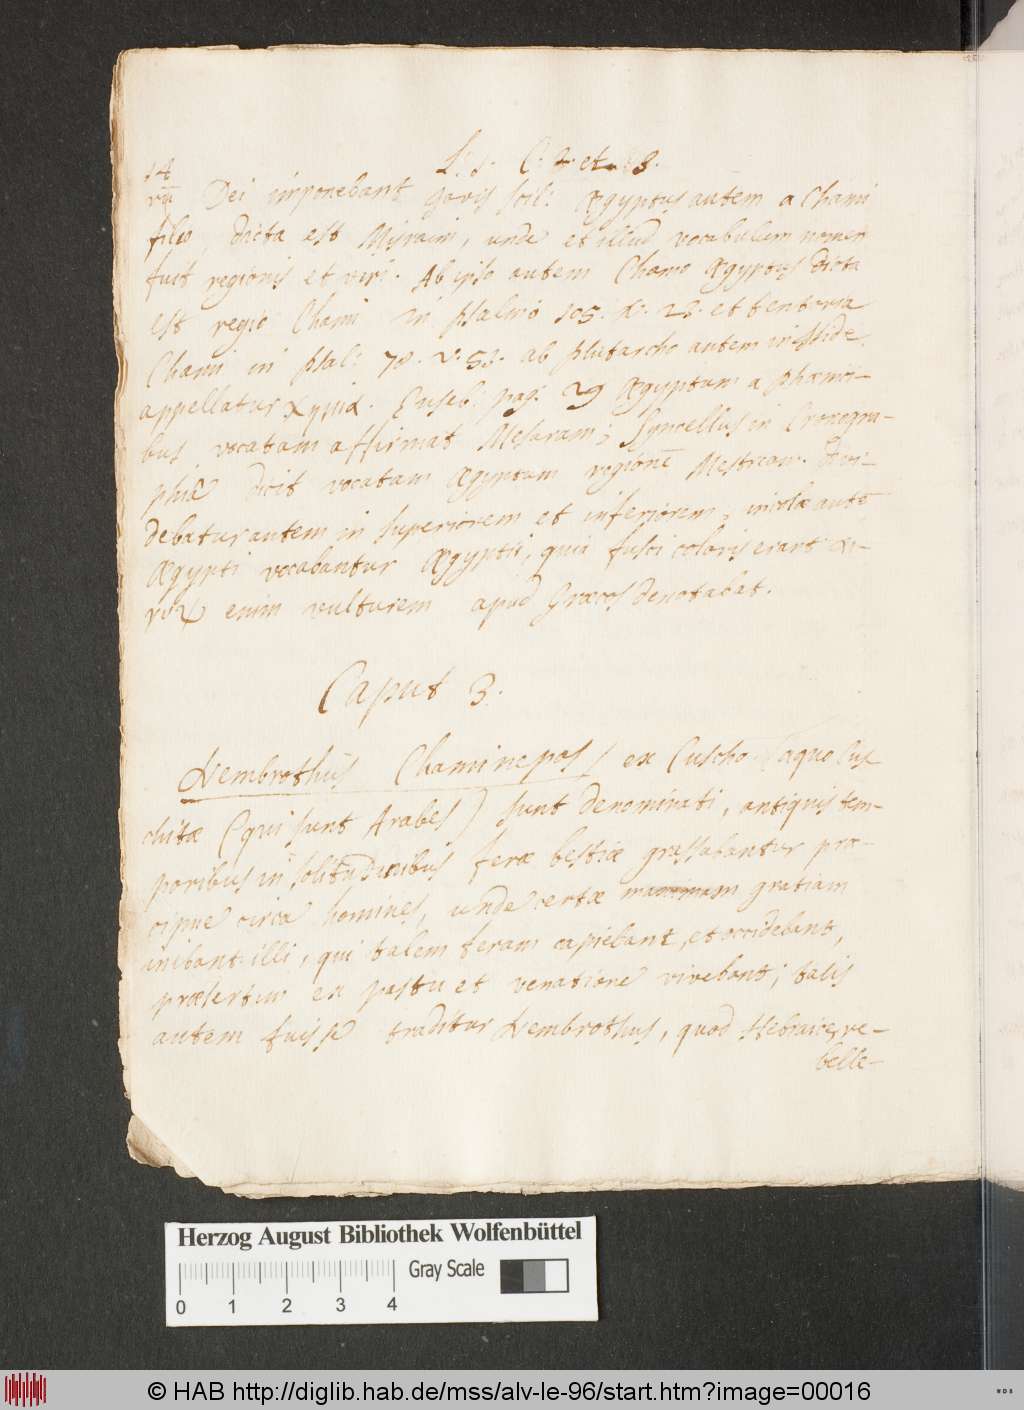 14
L. 1. C. 2. et 3.
rũ Dei imponebant Jovis scil: Ægyptus autem a Chami
filio dicta est Misraim, unde et illud vocabulum nomen
fuit regionis et viri. Ab ipso autem Chamo Ægyptus dicta
est regio Chami in psalmo 105. v. 23. et tentoria
Chami in psal: 78. v. 51. ab plutarcho autem in Iside
appellatur χημια. Euseb: pag. 29 Ægyptum a phœnici-
bus vocatam affirmat Mesaram; Syncellus in Cronogra-
phiâ dicit vocatam Ægyptum regionẽ Mestream. Divi-
debatur autem in superiorem et inferiorem; incolæ autẽ
Ægypti vocabantur Ægyptii, quia fusci coloris erant
enim vulturem apud Græcos denotabat.
Caput 3.
Nembrothus Chami nepos ex Cuscho (a quo Cus
chitæ (qui sunt Arabes) sunt denominati, antiquis tem-
poribus in solitudinibus feræ bestiæ grassabantur præ-
cipue circa homines, unde certæ maximam gratiam
inibant illi, qui talem feram capiebant, et occidebant,
præsertim ex pastu et venatione vivebant; talis
autem fuisse traditur Nembrothus, quod Hebraice, re-
belle-
Herzog August Bibliothek Wolfenbüttel
Gray Scale
0 1 2 3 4
© HAB http://diglib.hab.de/mss/alv-le-96/start.htm?image=00016